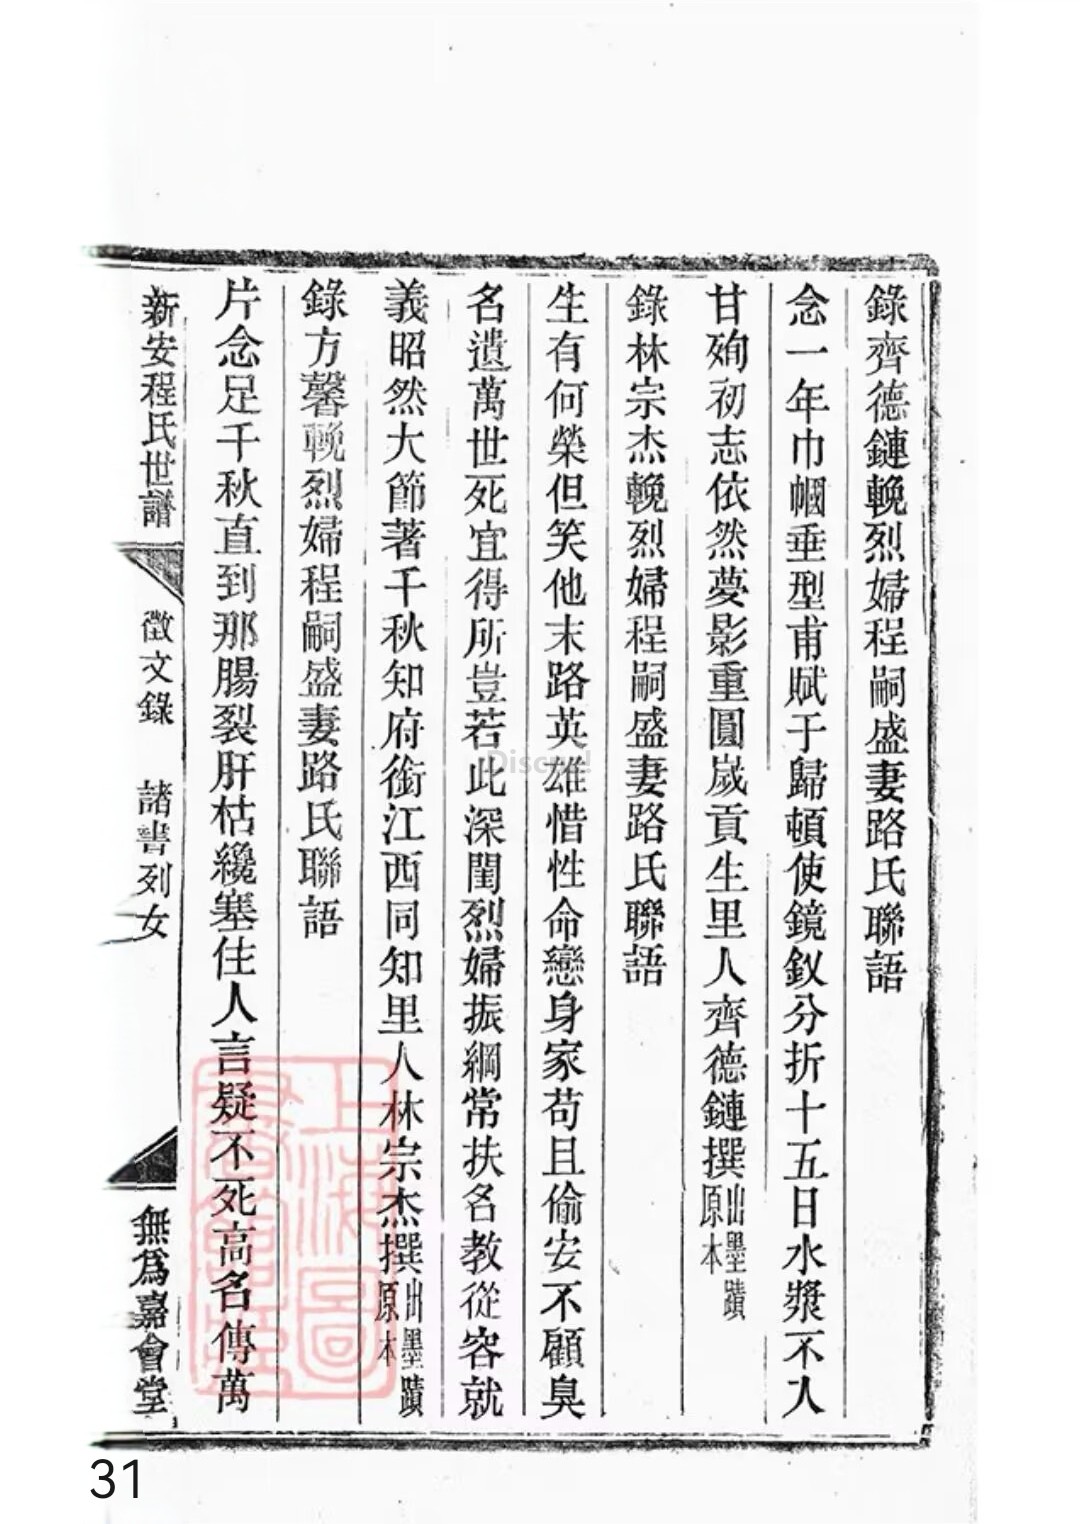 錄齊德鏈輓烈婦程嗣盛妻路氏聯語
念一年巾幗垂型甫賦于歸頓使鏡釵分折十五日水漿不入
甘殉初志依然夢影重圓歲貢生里人齊德鏈撰出墨蹟原本
錄林宗杰輓烈婦程嗣盛妻路氏聯語
生有何榮但笑他末路英雄惜性命戀身家苟且偷安不顧臭
名遺萬世死宜得所豈若此深閨烈婦振綱常扶名教從容就
義昭然大節著千秋知府銜江西同知里人林宗杰撰出墨蹟原本
錄方馨輓烈婦程嗣盛妻路氏聯語
片念足千秋直到那腸裂肝枯纔塞住人言疑不死高名傳萬
新安程氏世譜
徵文錄 諸書列女
無爲嘉會堂
上海圖書館藏
Discuz!
31